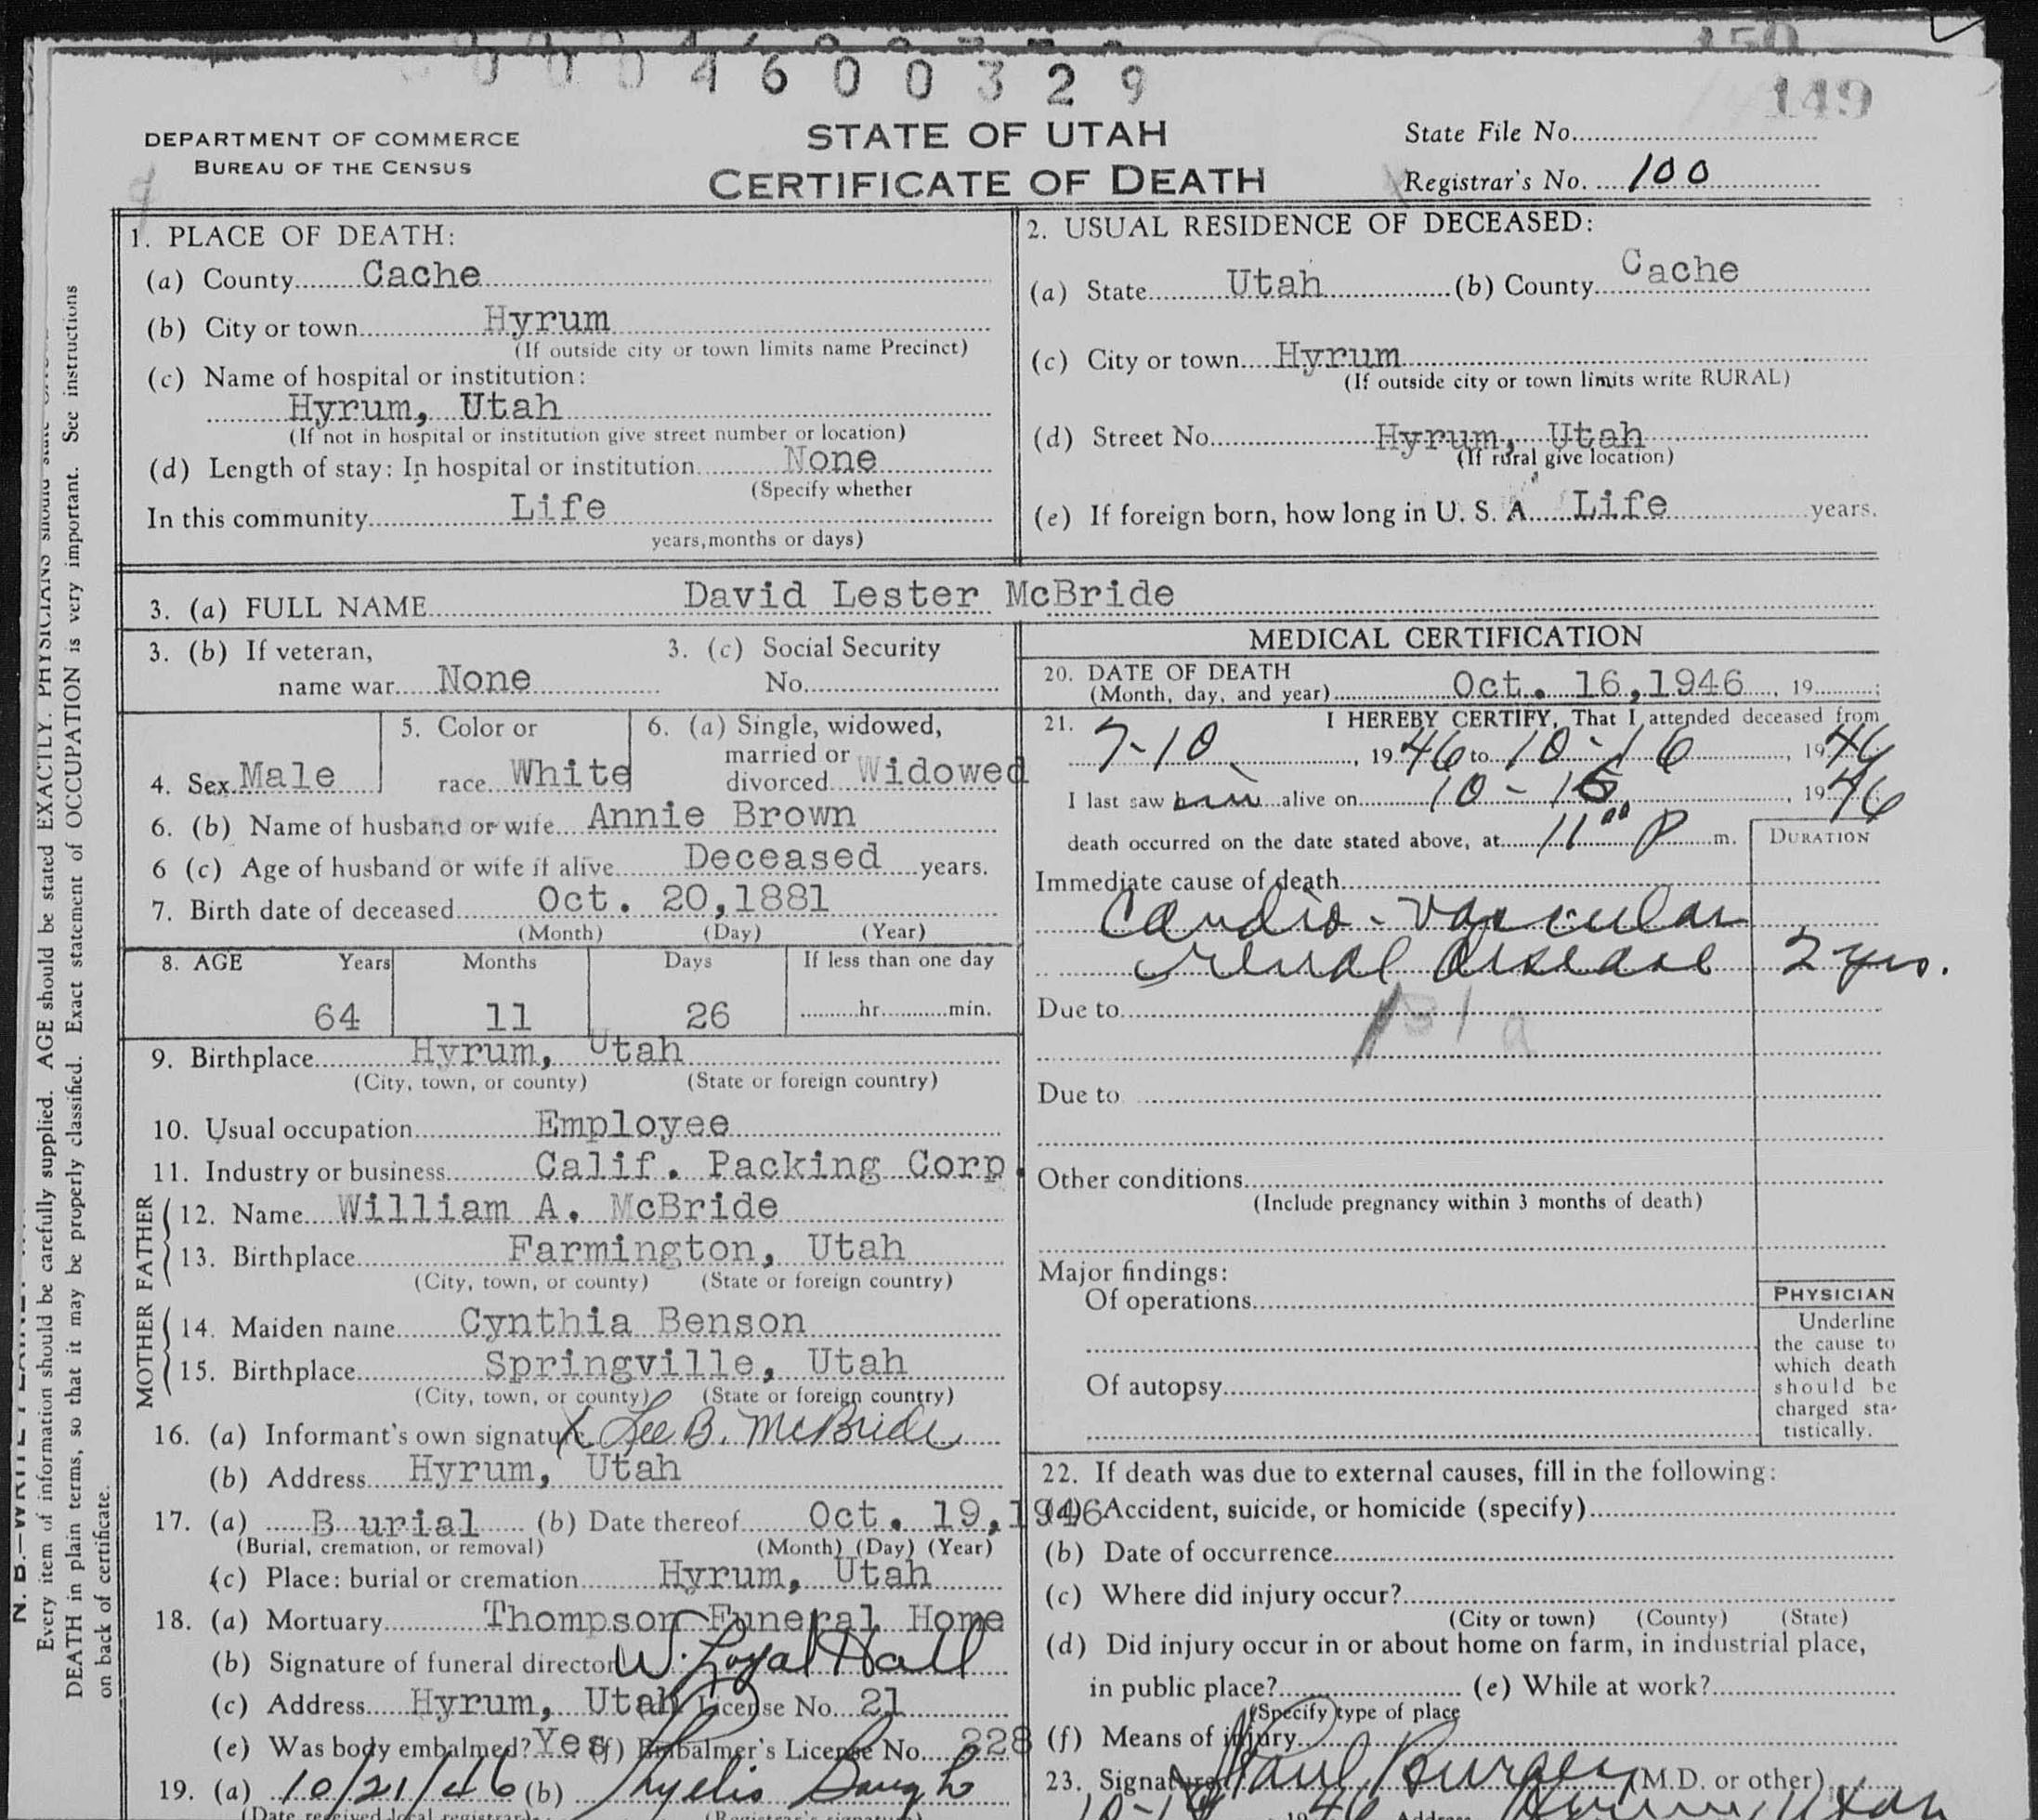 0004600329
149
DEPARTMENT OF COMMERCE
BUREAU OF THE CENSUS
STATE OF UTAH
CERTIFICATE OF DEATH
State File No.
Registrar's No. 100
1. PLACE OF DEATH:
(a) County Cache
(b) City or town Hyrum
(If outside city or town limits name Precinct)
(c) Name of hospital or institution:
Hyrum, Utah
(If not in hospital or institution give street number or location)
(d) Length of stay: In hospital or institution None
(Specify whether
In this community Life
years, months or days)
2. USUAL RESIDENCE OF DECEASED:
(a) State Utah (b) County Cache
(c) City or town Hyrum
(If outside city or town limits write RURAL)
(d) Street No. Hyrum, Utah
(If rural give location)
(e) If foreign born, how long in U. S. A. Life years.
3. (a) FULL NAME David Lester McBride
3. (b) If veteran, 3. (c) Social Security
name war None No.
4. Sex Male
5. Color or
race White
6. (a) Single, widowed,
married or
divorced Widowed
6. (b) Name of husband or wife Annie Brown
6 (c) Age of husband or wife if alive Deceased years.
7. Birth date of deceased Oct. 20,1881
(Month) (Day) (Year)
8. AGE Years Months Days If less than one day
64 11 26 hr. min.
9. Birthplace Hyrum, Utah
(City, town, or county) (State or foreign country)
10. Usual occupation Employee
11. Industry or business Calif. Packing Corp.
FATHER
12. Name William A. McBride
13. Birthplace Farmington, Utah
(City, town, or county) (State or foreign country)
MOTHER
14. Maiden name Cynthia Benson
15. Birthplace Springville, Utah
(City, town, or county) (State or foreign country)
16. (a) Informant's own signature X Lee B. McBride
(b) Address Hyrum, Utah
17. (a) B urial (b) Date thereof Oct. 19,1946
(Burial, cremation, or removal) (Month) (Day) (Year)
(c) Place: burial or cremation Hyrum, Utah
18. (a) Mortuary Thompson Funeral Home
(b) Signature of funeral director W. Loyal Hall
(c) Address Hyrum, Utah License No. 21
(e) Was body embalmed? Yes (f) Embalmer's License No. 228
19. (a) 10/21/46 (b)
(Date received local registrar) (Registrar's signature)
MEDICAL CERTIFICATION
20. DATE OF DEATH
(Month, day, and year) Oct. 16,1946, 19 ;
21. I HEREBY CERTIFY, That I attended deceased from
7-10, 1946 to 10-16, 1946
I last saw him alive on 10-15, 1946
death occurred on the date stated above, at 11 00 P m.
DURATION
Immediate cause of death
Cardio-Vascular
renal disease 2 yrs.
Due to
Due to
Other conditions
(Include pregnancy within 3 months of death)
Major findings:
Of operations
Of autopsy
PHYSICIAN
Underline
the cause to
which death
should be
charged sta-
tistically.
22. If death was due to external causes, fill in the following:
(a) Accident, suicide, or homicide (specify)
(b) Date of occurrence
(c) Where did injury occur?
(City or town) (County) (State)
(d) Did injury occur in or about home on farm, in industrial place,
in public place? (e) While at work?
(Specify type of place
(f) Means of injury
23. Signature Paul Burgess (M.D. or other)
Address Hyrum, Utah
Every item of information should be carefully supplied. AGE should be stated EXACTLY. PHYSICIANS should state
DEATH in plain terms, so that it may be properly classified. Exact statement of OCCUPATION is very important. See instructions
on back of certificate.